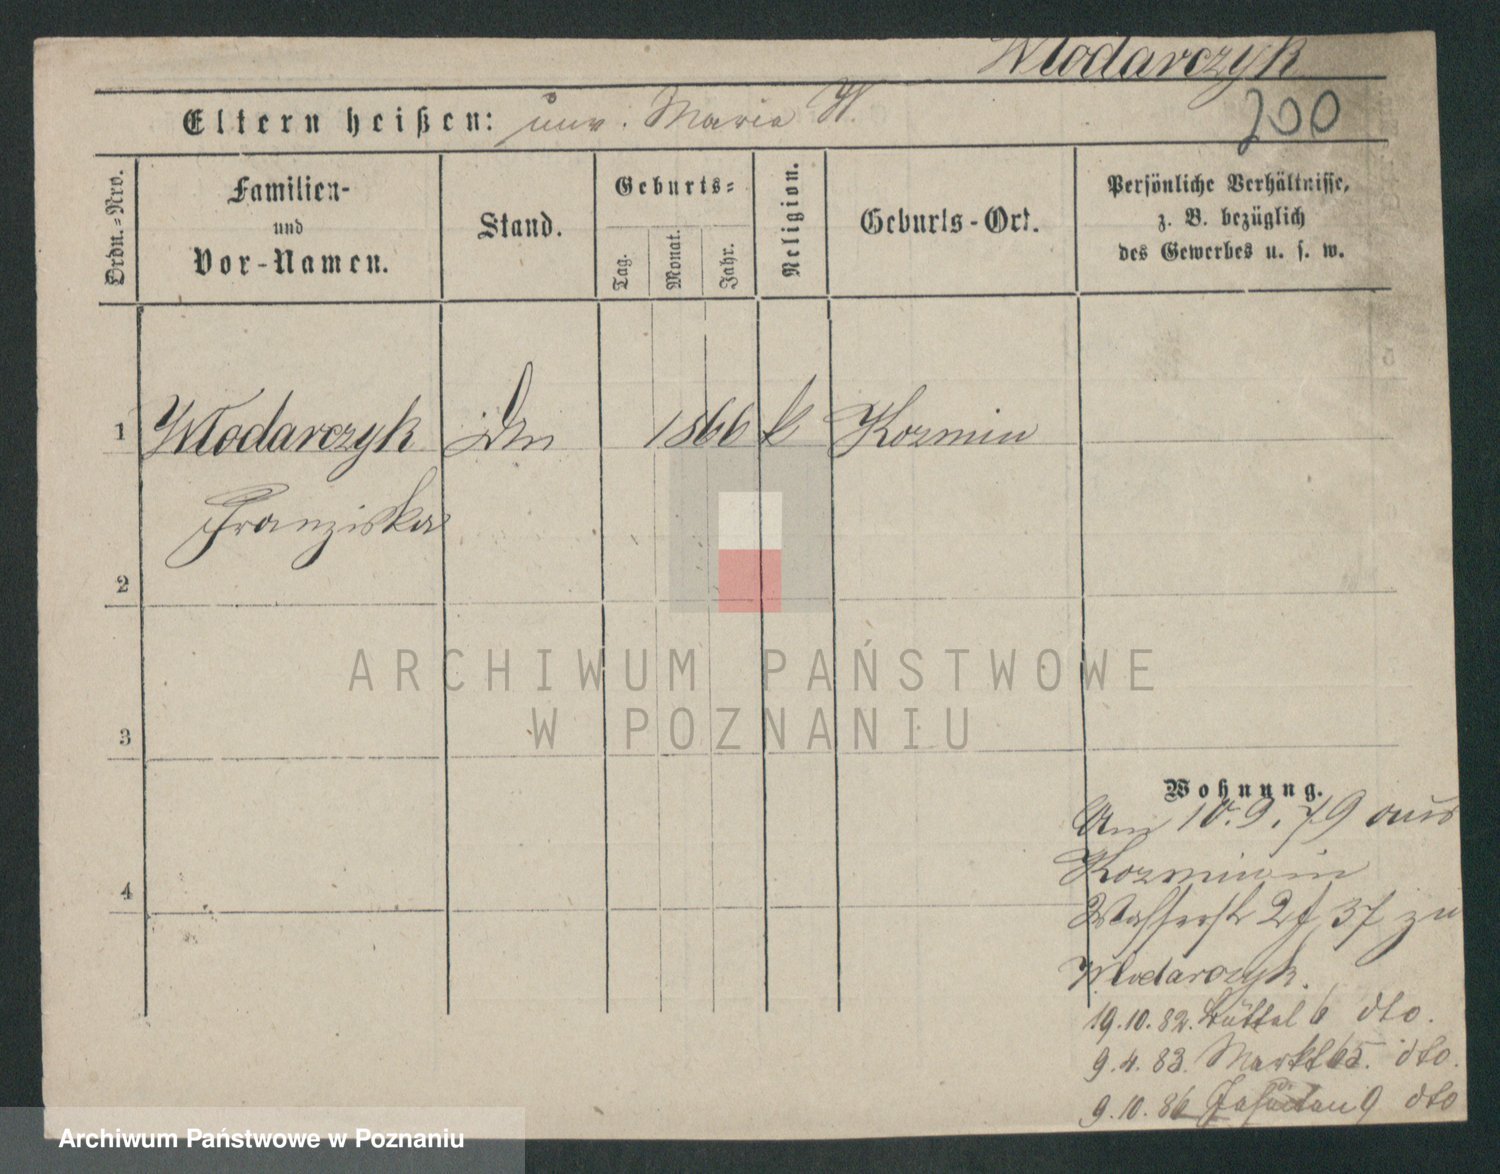 Wlodarczyk
200
Eltern heißen: unv. Maria W.
Ordn.-Nro.
Familien-
und
Vor-Namen.
Stand.
Geburts-
Tag.
Monat.
Jahr.
Religion.
Geburts-Ort.
Persönliche Verhältnisse,
z. B. bezüglich
des Gewerbes u. s. w.
1 Wlodarczyk 1866 k Kozmin
Franziska
2
3
4
ARCHIWUM PAŃSTWOWE
W POZNANIU
Wohnung.
Am 10.9.79 aus
Kozmin in
Wasserstr 27 zu
Wlodarczyk.
19.10.82. Büttel 6 dto.
9.4.83. Markt 65. dto.
9.10.86 9 dto
Archiwum Państwowe w Poznaniu